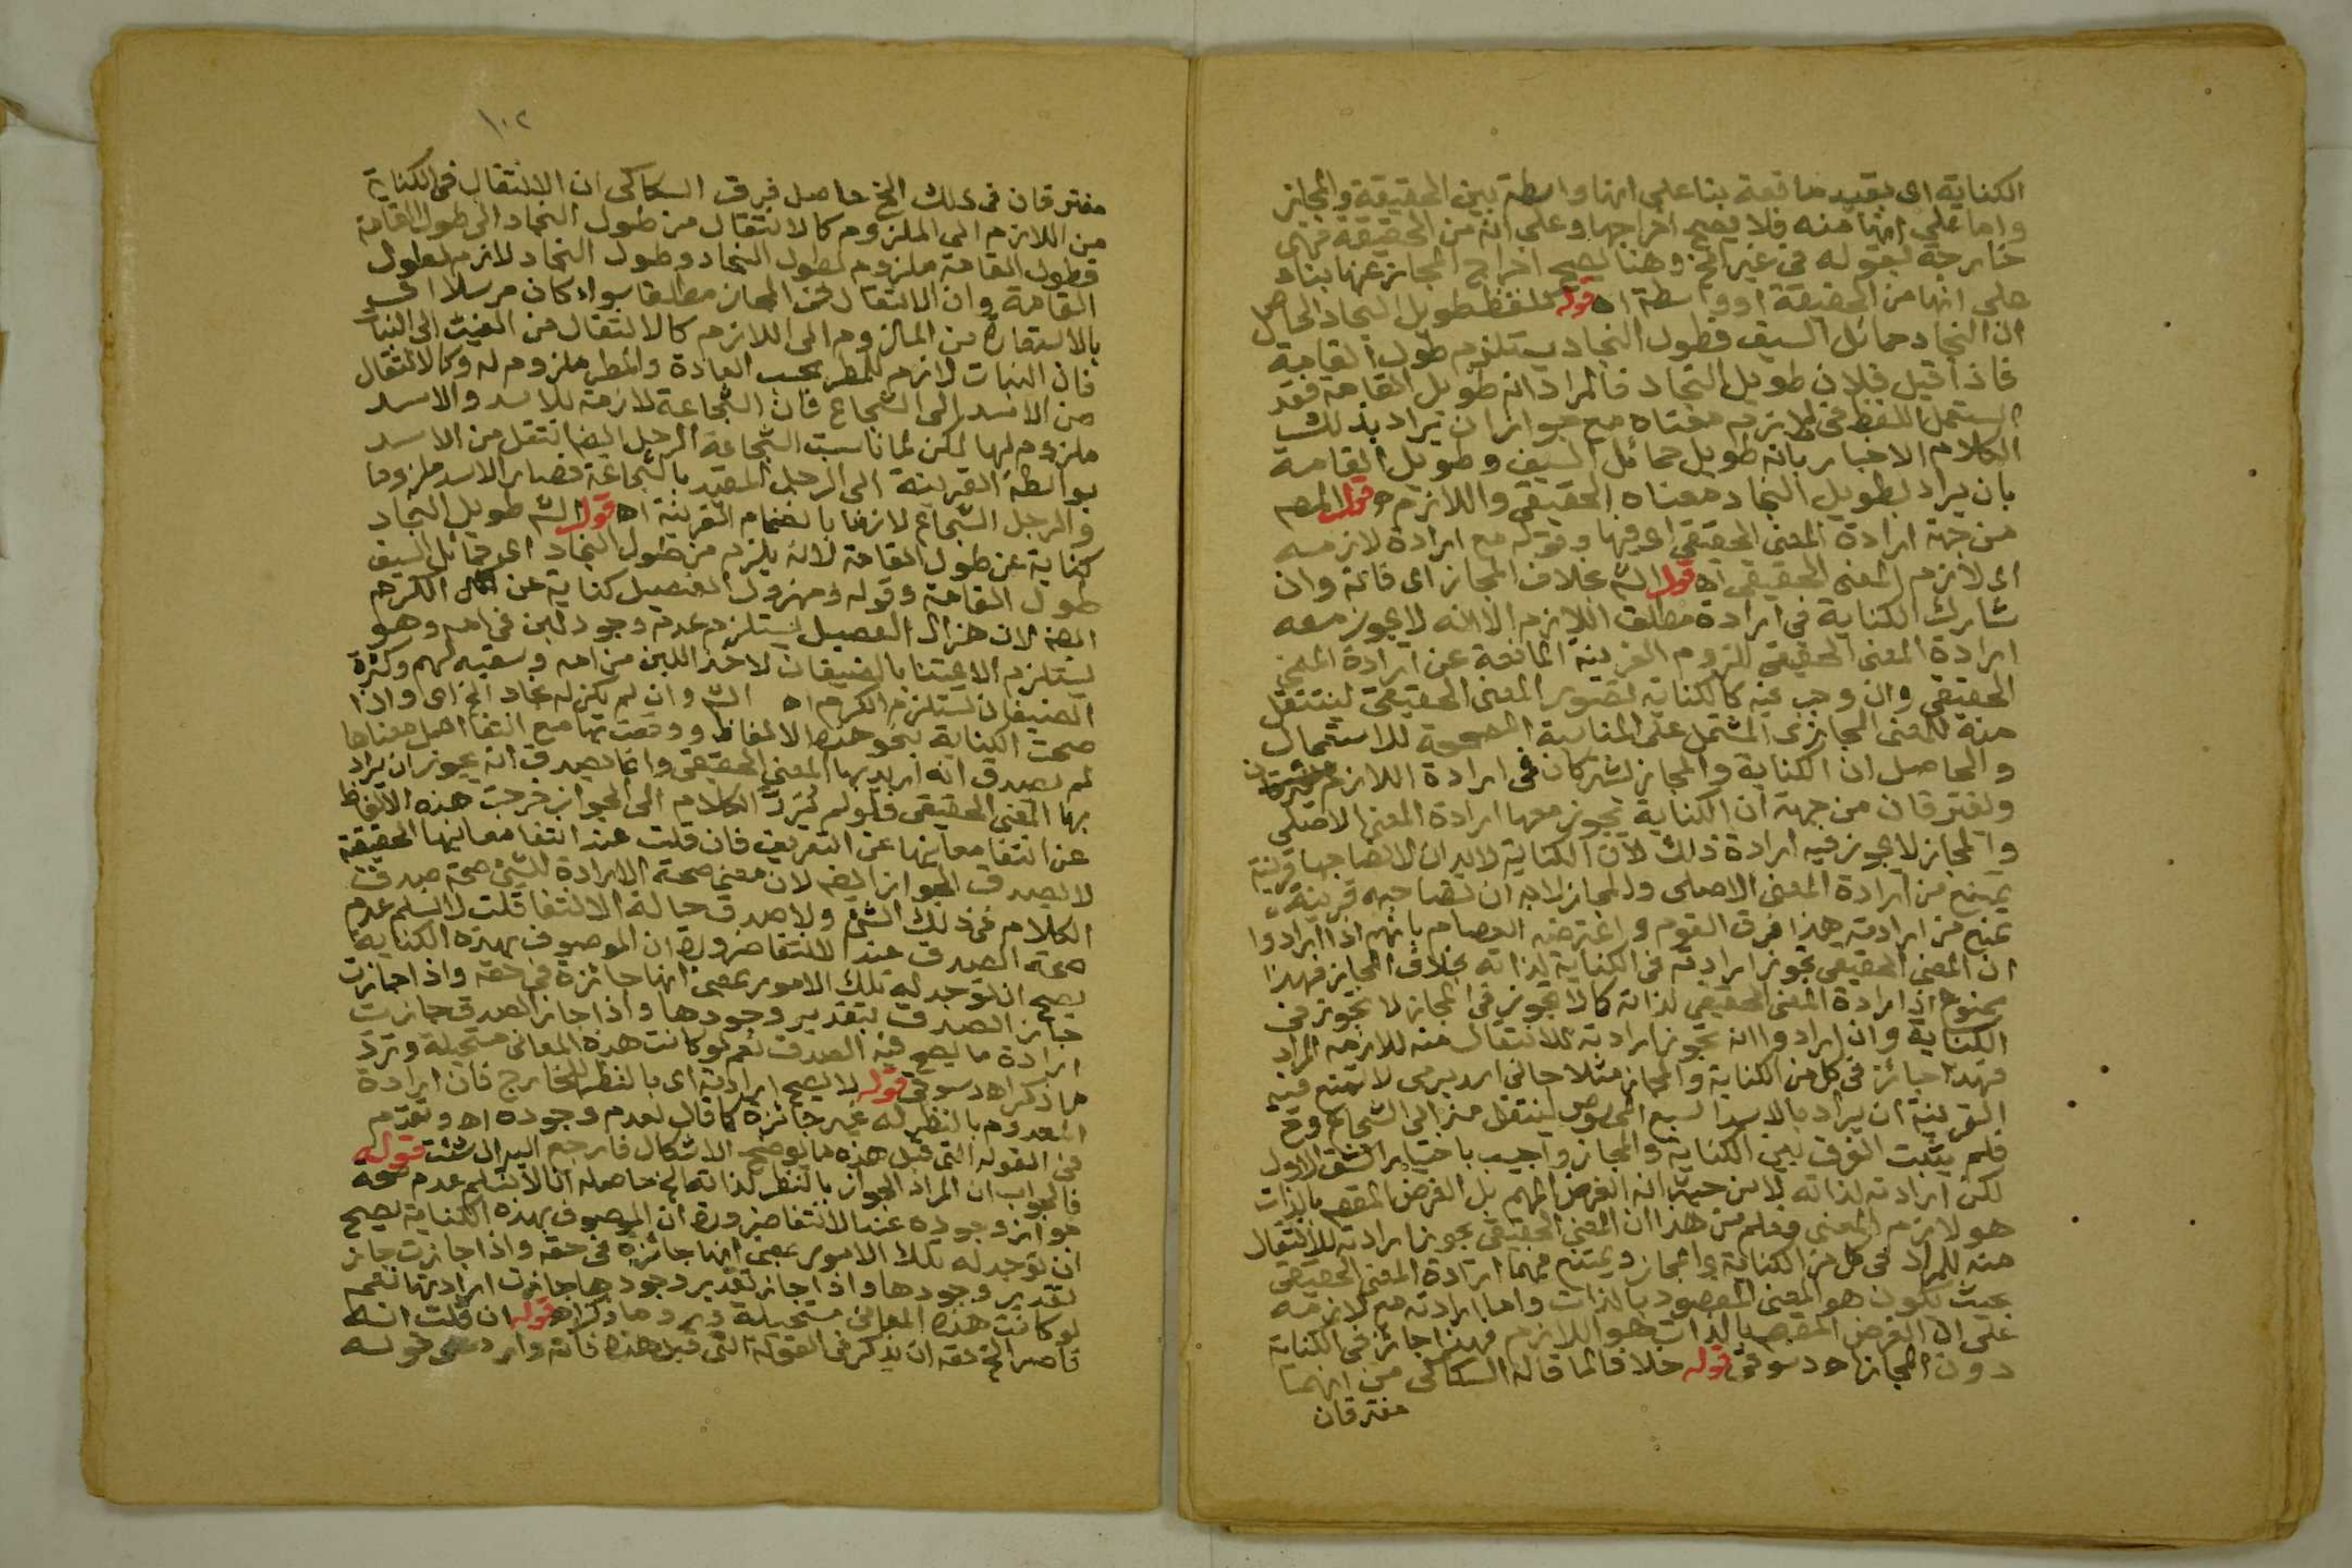 الكناية اى بقيد مانعة بنا على انها واسطة بين الحقيقة والمجاز
واما على انها منه فلا يصح اخراجها وعلى انه من الحقيقة فهى
خارجة بقوله فى غير الخ وهنا يصح اخراج المجاز عنها بناء
على انها من الحقيقة او واسطة اه قوله كلفظ طويل النجاد الحاصل
ان النجاد حمائل السيف فطول النجاد يستلزم طول القامة
فاذا قيل فلان طويل النجاد فالمراد انه طويل القامة فقد
استعمل اللفظ فى لازم معناه مع جواز ان يراد بذلك
الكلام الاخبار بانه طويل حمائل السيف وطويل القامة
بان يراد بطويل النجاد معناه الحقيقى واللازم اه قوله المص
من جهة ارادة المعنى الحقيقى اى فيها وقوله مع ارادة لازمه
اى لازم المعنى الحقيقى اه قوله الش بخلاف المجاز اى فانه وان
شارك الكناية فى ارادة مطلق اللازم الا انه لا يجوز معه
ارادة المعنى الحقيقى للزوم القرينة المانعة عن ارادة المعنى
الحقيقى وان وجب فيه كالكناية تصوير المعنى الحقيقى لينتقل
منه للمعنى المجازى المشتمل على المناسبة المصححة للاستعمال
والحاصل ان الكناية والمجاز يشتركان فى ارادة اللازم
ويفترقان من جهة ان الكناية يجوز معها ارادة المعنى الاصلى
والمجاز لا يجوز فيه ارادة ذلك لان الكناية لابد ان لا تصاحبها قرينة
تمنع من ارادة المعنى الاصلى والمجاز لابد ان تصاحبه قرينة
تمنع من ارادته هذا فرق القوم واعترضه العصام بانهم اذا ارادوا
ان المعنى الحقيقى تجوز ارادته فى الكناية لذاته بخلاف المجاز فهذا
ممنوع اذ ارادة المعنى الحقيقى لذاته كما لا تجوز فى المجاز لا تجوز فى
الكناية وان ارادوا انه تجوز ارادته للانتقال منه للازمه المراد
فهذا جائز فى كل من الكناية والمجاز مثلا جانى اسد يرمى لا تمنع فيه
القرينة ان يراد بالاسد السبع المخصوص لينتقل منه الى الشجاع وح
فلم يثبت الفرق بين الكناية والمجاز واجيب باختيار الشق الاول
لكن ارادته لذاته لا من حيث انه الغرض المهم بل الغرض المقص بالذات
هو لازم المعنى فعلم من هذا ان المعنى الحقيقى يجوز ارادته للانتقال
منه للمراد فى كل من الكناية والمجاز ويمتنع فيهما ارادة المعنى الحقيقى
بحيث يكون هو المعنى المقصود بالذات واما ارادته مع لازمه
على ان الغرض المقص بالذات هو اللازم فهذا جائز فى الكناية
دون المجاز اه دسوقى قوله خلافا لما قاله السكاكى من انهما
مفترقان
١٠٢
مفترقان فى ذلك الخ حاصل فرق السكاكى ان الانتقال فى الكناية
من اللازم الى الملزوم كالانتقال من طول النجاد الى طول القامة
فطول القامة ملزوم لطول النجاد وطول النجاد لازم لطول
القامة وان الانتقال فى المجاز مطلقا سواء كان مرسلا او
بالاستعارة من الملزوم الى اللازم كالانتقال من الغيث الى النبات
فان النبات لازم للمطر بحسب العادة والمطر ملزوم له وكالانتقال
من الاسد الى الشجاع فان الشجاعة لازمة للاسد والاسد
ملزوم لها لكن لما ناسبت الشجاعة الرجل ايضا انتقل من الاسد
بواسطة القرينة الى الرجل المقيد بالشجاعة فصار الاسد ملزوما
والرجل الشجاع لازما بانضمام القرينة اه قوله الش طويل النجاد
كناية عن طول القامة لانه يلزم من طول النجاد اى حمائل السيف
طول القامة وقوله ومهزول الفصيل كناية عن الكرم
ايضا لان هزال الفصيل يستلزم عدم وجود لبن فى امه وهو
يستلزم الاعتنا بالضيفان لاخذ اللبن من امه وسقيه لهم وكثرة
الضيفان تستلزم الكرم اه الش وان لم يكن له نجاد الخ اى واذا
صحت الكناية بنحو هذه الالفاظ ووقعت بها مع انتفا اصل معناها
لم يصدق انه اريد بها المعنى الحقيقى وانما يصدق انه يجوز ان يراد
بها المعنى الحقيقى فلو لم يرد الكلام الى الجواز خرجت هذه الالفاظ
عن انتفا معانيها عن التعريف فان قلت عند انتفا معانيها الحقيقة
لا يصدق الجواز ايضا لان معنى صحة الارادة للشى صحة صدق
الكلام فى ذلك الشى ولا صدق حالة الانتفا قلت لا نسلم عدم
صحة الصدق عند الانتفا ضرورة ان الموصوف بهذه الكنايات
يصح ان توجد له تلك الامور بمعنى انها جائزة فى حقه واذا جازت
جاز الصدق بتقدير وجودها واذا جاز الصدق جازت
ارادة ما يصح فيه الصدق نعم لو كانت هذه المعانى مستحيلة وترد
ما ذكر اه دسوقى قوله لا يصح ارادته اى بالنظر للخارج فان ارادة
المعدوم بالنظر له غير جائزة كما قال لعدم وجوده اه وتقدم
فى القوله التى قبل هذه ما يوضح الاشكال فارجع اليه ان شئت قوله
فالجواب ان المراد الجواز بالنظر لذاته الخ حاصله انا لا نسلم عدم صحة
جواز وجوده عند الانتفا ضرورة ان الموصوف بهذه الكناية يصح
ان توجد له تلك الامور بمعنى انها جائزة فى حقه واذا جازت جاز
تقدير وجودها واذا جاز تقدير وجودها جازت ارادتها نعم
لو كانت هذه المعانى مستحيلة ورد ما ذكر اه قوله ان قلت انه
قاصر الخ حقه ان يذكر فى القوله التى قبل هذه فانه وارد على قوله